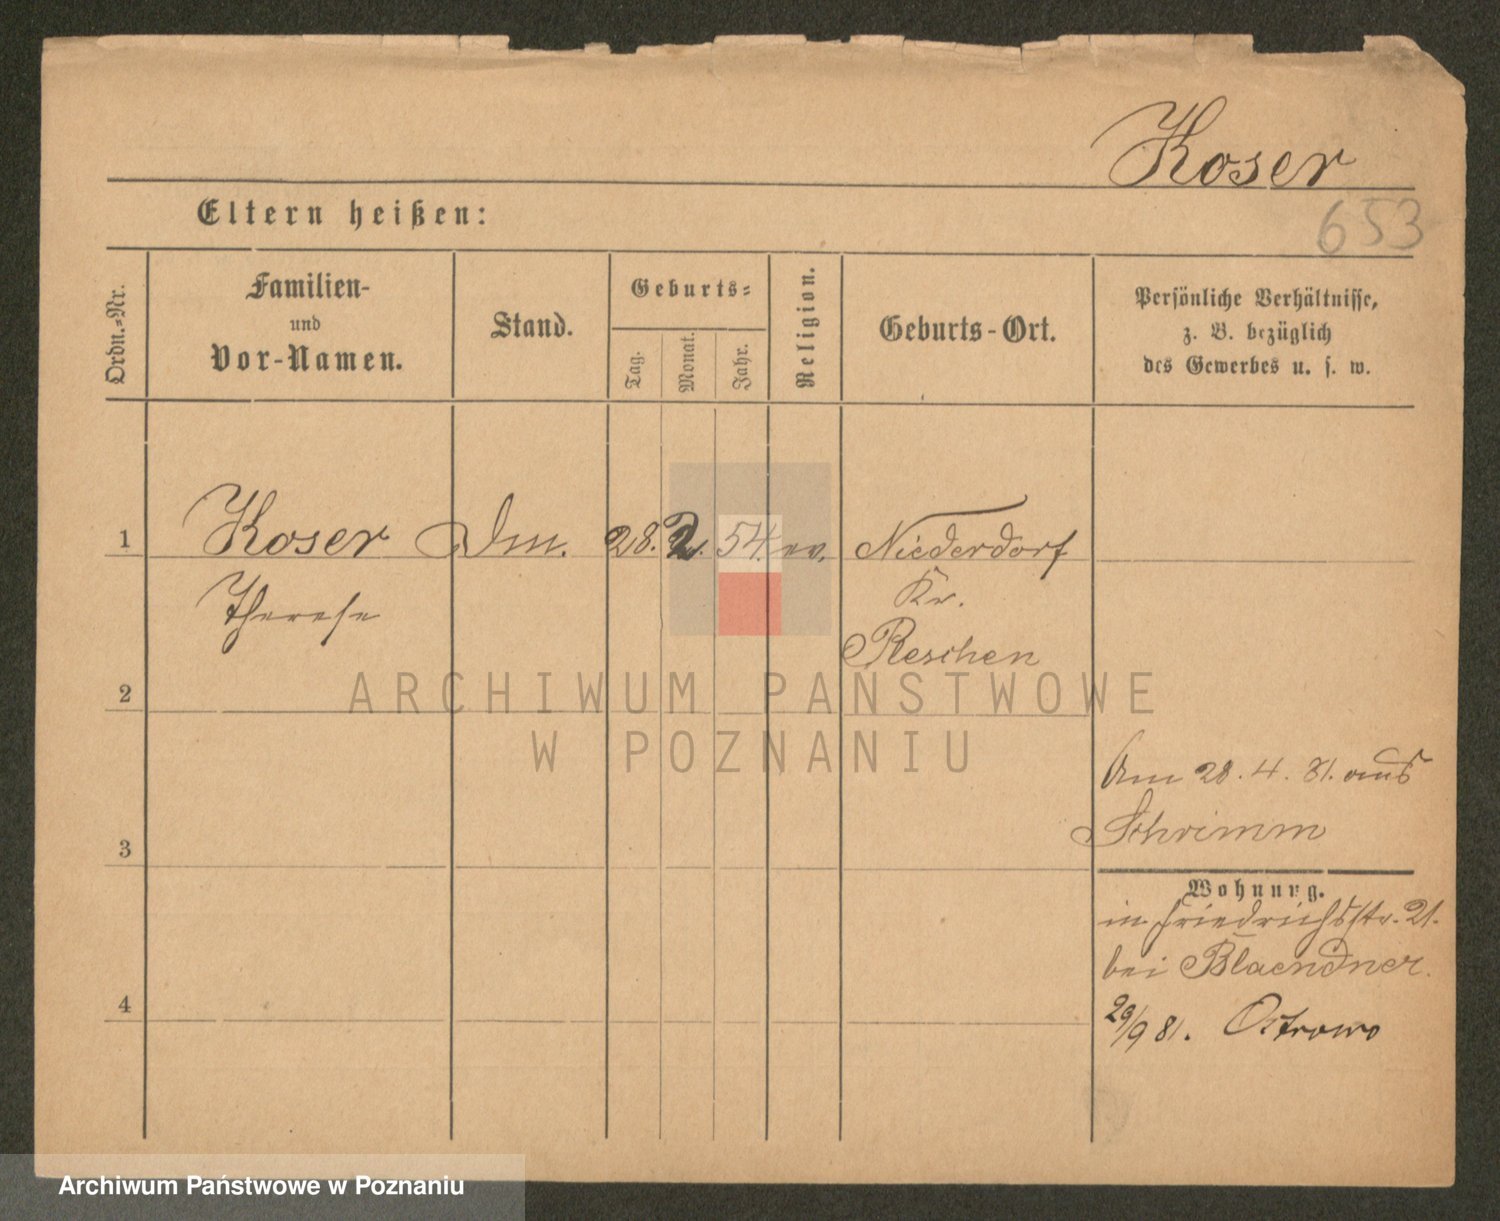 Koser
653
Eltern heißen:
Ordn.-Nr.
Familien-
und
Vor-Namen.
Stand.
Geburts-
Tag.
Monat.
Jahr.
Religion.
Geburts-Ort.
Persönliche Verhältnisse,
z. B. bezüglich
des Gewerbes u. s. w.
1 Koser Dm. 28. 2. 54. ev. Niederdorf
Therese
Kr.
Reschen
2
ARCHIWUM PAŃSTWOWE
W POZNANIU
Am 28. 4. 81. aus
Schrimm
3
Wohnung.
in Friedrichsstr. 21.
bei Blaendner.
4
29/9 81. Ostrowo
Archiwum Państwowe w Poznaniu